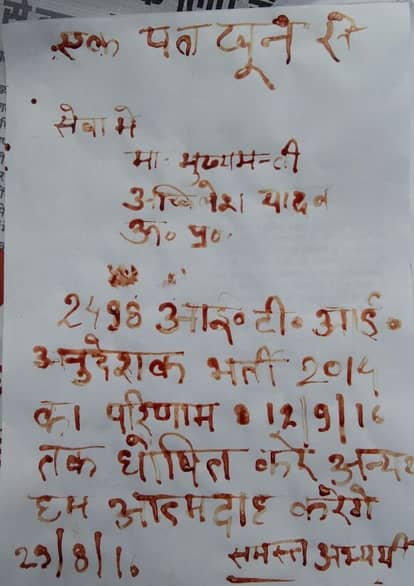 एक पत्र खून से
सेवा में
मा॰ मुख्यमन्त्री
अखिलेश यादव
उ॰ प्र॰
2498 आई॰ टी॰ आई॰
अनुदेशक भर्ती 2014
का परिणाम 12/9/16
तक घोषित करें अन्यथ
हम आत्मदाह करेंगे
29/8/16
समस्त अभ्यर्थी